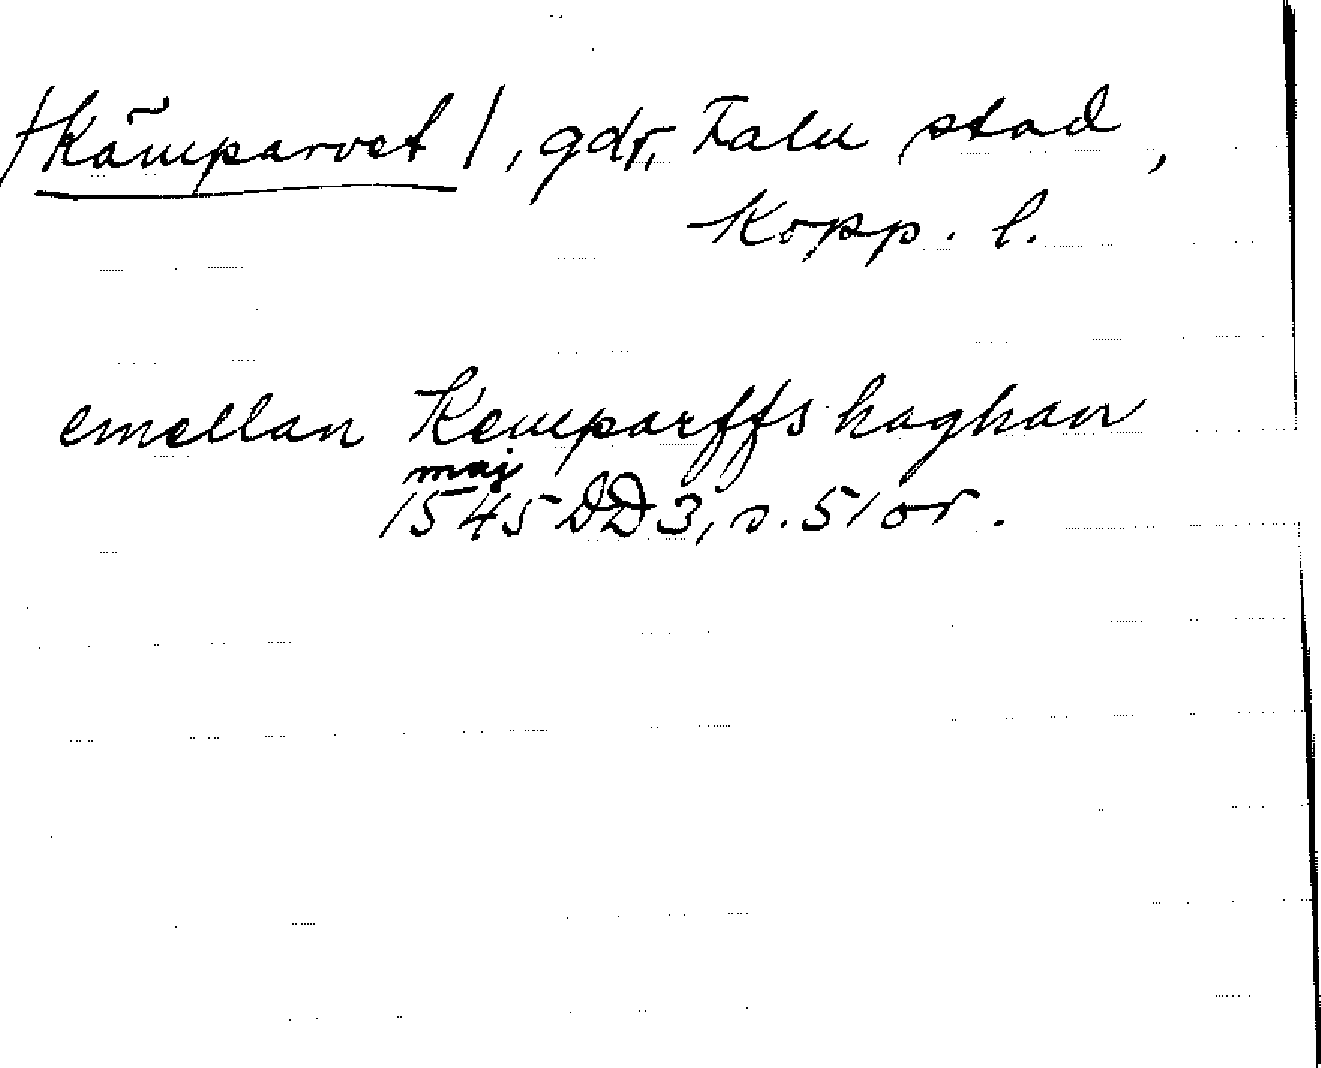 /Kämparvet/, gdr, Falu stad,
Kopp. l.
emellan Kemparffs haghan
maj
1545 DD 3, s. 51 or.